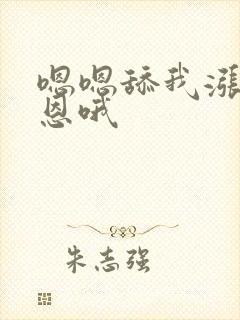 嗯嗯舔我涨
恩哦
朱志强